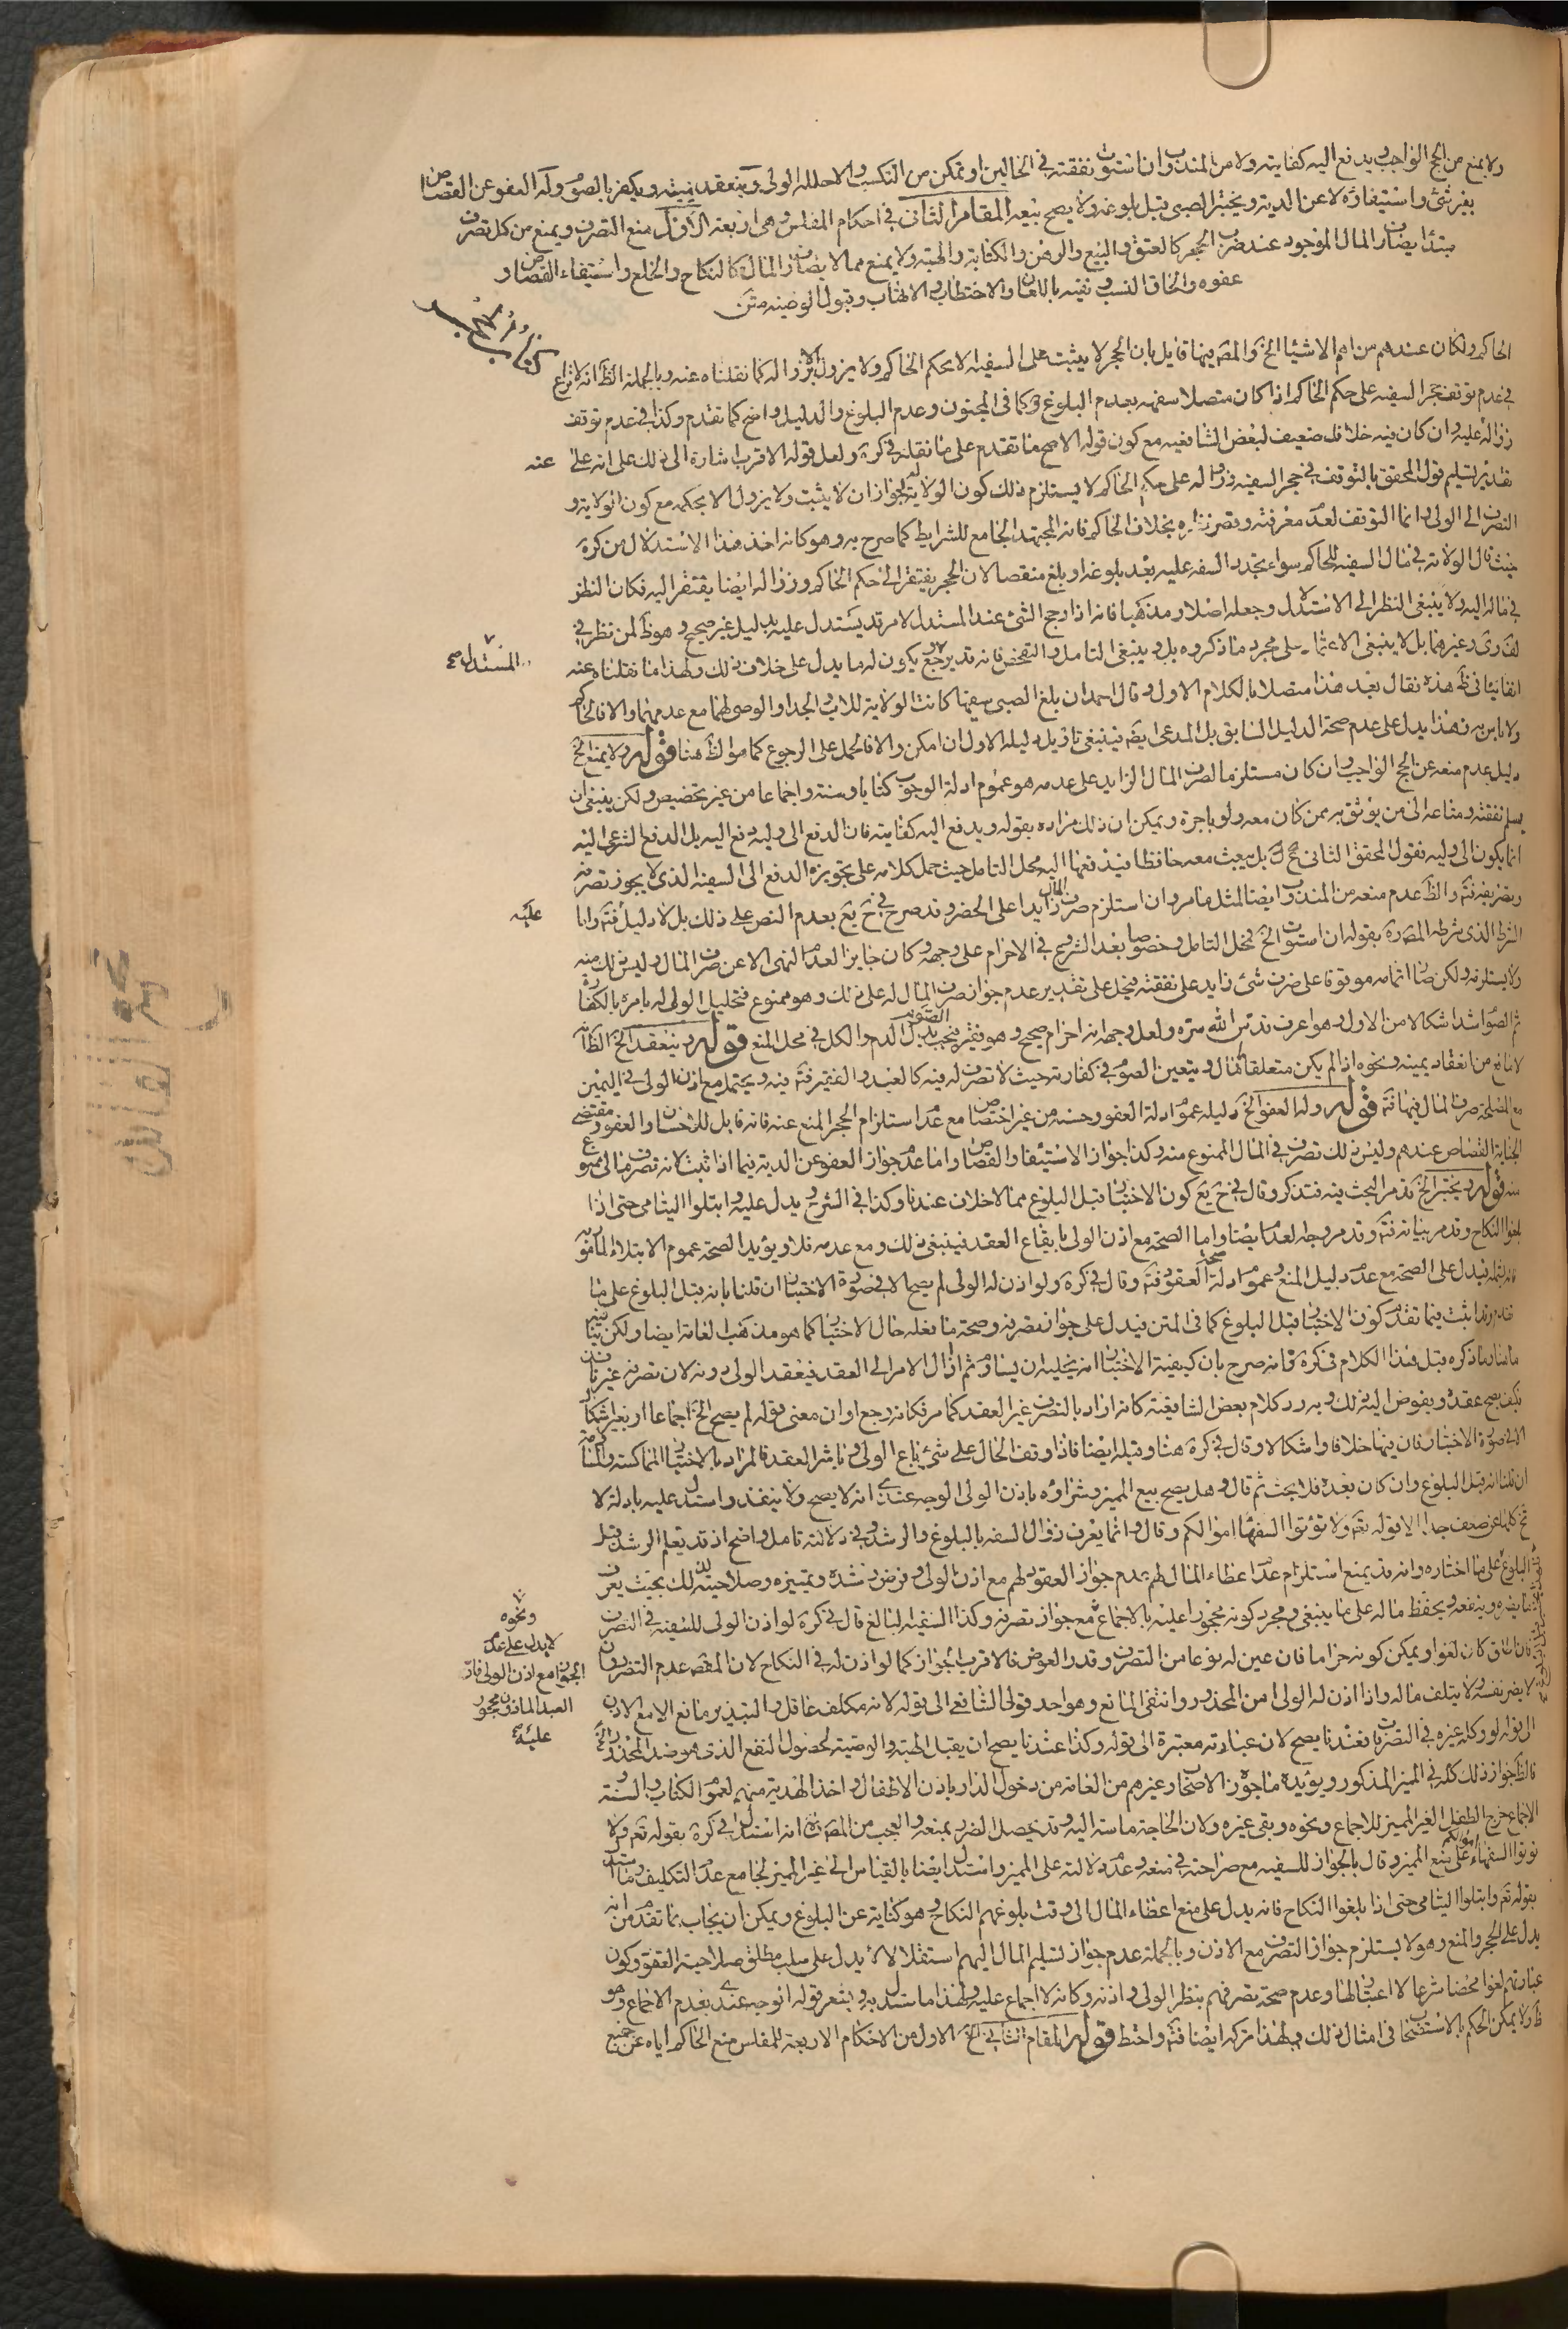 ولا يمنع من الحج الواجب ويدفع اليه كفايته ولا من المندوب ان استوت نفقته في الحالين او تمكن من التكسب والا حلله الولي وينعقد يمينه ويكفر بالصوم وله العفو عن القصاص
بغير شئ واستيفاؤه لا عن الدية ويختبر الصبي قبل بلوغه ولا يصح بيعه المقام الثاني في احكام المفلس وهي اربعة الاول منع التصرف ويمنع من كل تصرف
مبتدأ يصادف المال الموجود عند ضرب الحجر كالعتق والبيع والرهن والكتابة والهبة ولا يمنع مما لا يصادف المال كالنكاح والخلع واستيفاء القصاص و
عفوه والحاق النسب ونفيه باللعان والاحتطاب والاتهاب وقبول الوصية متن
الحاكم ولكان عندهم من اهم الاشياء الخ والمصه فيها قايل بان الحجر لا يثبت على السفيه الا بحكم الحاكم ولا يزول الا بزواله كما نقلناه عنه وبالجملة الظ انه لا نزاع
في عدم توقف حجر السفيه على حكم الحاكم اذا كان متصلا سفهه بعدم البلوغ كما في المجنون وعدم البلوغ والدليل واضح كما تقدم وكذا في عدم توقف
زواله عليه وان كان فيه خلاف ضعيف لبعض الشافعيه مع كون قوله الاصح ما تقدم على ما نقله في كرة ولعل قوله الاقرب اشارة الى ذلك على انه على
عنه
تقدير تسليم قول المحقق بالتوقف في حجر السفيه وزواله على حكم الحاكم لا يستلزم ذلك كون الولاية له لجواز ان لا يثبت ولا يزول الا بحكمه مع كون الولاية و
التصرف الى الولي وانما التوقف لعدم معرفته وقصر نظره بخلاف الحاكم فانه المجتهد الجامع للشرايط كما صرح به وهو كانه اخذ هذا الاستدلال من كرة
حيث قال الولاية في مال السفيه للحاكم سواء تجدد السفه عليه بعد بلوغه او بلغ سفيها لان الحجر يفتقر الى حكم الحاكم وزواله ايضا يفتقر اليه فكان النظر
في ماله اليه ولا ينبغي النظر الى الاستدلال وجعله اصلا ومذهبا فانه اذا رجح الشئ عند المستدل لامر قد يستدل عليه بدليل غير صحيح وهو ظ لمن نظر في
المستدل صح
لف وى وغيرهما بل لا ينبغي الاعتماد على مجرد ما ذكروه بل وينبغي التامل والتفحص فانه قد يرجع او يكون له ما يدل على خلاف ذلك ولهذا ما نقلناه عنه
هذه فقال بعد هذا متصلا بالكلام الاول وقال احمد ان بلغ الصبي سفيها كانت الولاية للاب والجد او الوصي لهما مع عدمهما والا فالحاكم
ولا باس به فهذا يدل على عدم صحة الدليل السابق بل المدعى ايضه فينبغي تاويل دليله الاول ان امكن والا فالحمل على الرجوع كما هو الظ هنا قوله ولا يمنع الخ
دليل عدم منعه عن الحج الواجب وان كان مستلزما لصرف المال الزايد على عدمه هو عموم ادلة الوجوب كتابا وسنة واجماعا من غير تخصيص ولكن ينبغي ان
يسلم نفقته ومتاعه الى من يوثق به ممن كان معه ولو باجرة ويمكن ان ذلك مراده بقوله ويدفع اليه كفايته فان الدفع الى وليه دفع اليه بل الدفع الشرعي اليه
انما يكون الى وليه فقول المحقق الثاني بل يبعث معه حافظا فيدفعها اليه محل التامل حيث حمل كلامه على تجويزه الدفع الى السفيه الذي لا يجوز تصرفه
والظ عدم منعه من المندوب ايضا لمثل ما مر وان استلزم صرف المال زايدا على الحضر وقد صرح في ح يع بعدم النص على ذلك بل لا دليل فتم واما
عليه
الشرط الذي شرطه المصه ره بقوله ان استوت الخ فمحل التامل وخصوصا بعد الشروع في الاحرام على وجهه وكان جايزا لعدم النهي الا عن صرف المال وليس ذلك منه
ولا يستلزمه ولكن صار اتمامه موقوفا على صرف شئ زايد على نفقته فيحل على تقدير عدم جواز صرف المال له على ذلك وهو ممنوع فتحليل الولي له يامره بالكفارة
ثم الصوم اشد اشكالا من الاول وهو اعرف قدس الله سره ولعل وجهه انه احرام صحيح وهو فقير فيجب الصوم بدل الدم والكل في محل المنع قوله وينعقد الخ الظ انه
لا مانع من انعقاد يمينه ونحوه اذا لم يكن متعلقا بالمال ويتعين الصوم في كفارته حيث لا تصرف له فيه كالعبد والفقير فتم فيه ويحتمل مع اذن الولي في اليمين
مع المصلحة صرف المال فيها فتم قوله وله العفو الخ دليله عموم ادلة العفو وحسنه من غير اختصاص مع عدم استلزام الحجر المنع عنه فانه قابل للاحسان والعفو ومقتضى
الجناية القصاص عندهم وليس ذلك تصرف في المال الممنوع منه وكذا جواز الاستيفاء والقصاص واما عدم جواز العفو عن الدية فيما اذا ثبت لانه تصرف مالي ممنوع
منه قوله ويختبر الخ قد مر البحث فيه فتذكر وقال في ح يع كون الاختبار قبل البلوغ مما لا خلاف عندنا وكذا في الشرح ويدل عليه وابتلوا اليتامى حتى اذا
بلغوا النكاح وقد مر بيانه فتم وقد مر وجه لعدم ايضا واما الصحة مع اذن الولي بايقاع العقد فينبغي ذلك ومع عدمه فلا ويؤيد الصحة عموم الابتلاء المأمور به
فانه يدل على الصحة مع عدم دليل المنع وعموم ادلة صحة العقود فتم وقال في كرة ولو اذن له الولي لم يصح الا في صورة الاختبار ان قلنا بانه قبل البلوغ على ما
تقدم وقد اثبت فيما تقدم كون الاختبار قبل البلوغ كما في المتن فيدل على جواز تصرفه وصحة ما يفعله حال الاختبار كما هو مذهب العامة ايضا ولكن ينافيه
ما ذكره قبل هذا الكلام في كرة فانه صرح بان كيفية الاختبار انه يخليه ان يساوم ثم اذا آل الامر الى العقد فيعقد الولي دونه لان تصرفه غير نافذ
فكيف يصح عقده ويفوض اليه ذلك وبه رد كلام بعض الشافعية كانه اراد بالتصرف غير العقد كما مر فكانه رجع او ان معنى قوله لم يصح الخ اجماعا او بغير اشكال
الا في صورة الاختبار فان فيها خلافا واشكالا وقال في كرة هنا وقبله ايضا فاذا وقف الحال على شئ باع الولي وباشر العقد فالمراد بالاختبار المماكسة والمساومة
ان قلنا انه قبل البلوغ وان كان بعده فلا بحث ثم قال وهل يصح بيع المميز وشراؤه باذن الولي الوجه عندي انه لا يصح ولا ينفذ واستدل عليه بادلة لا
تخ كلها عن ضعف جدا الا قوله تعه ولا تؤتوا السفهاء اموالكم وقال وانما يعرف زوال السفه بالبلوغ والرشد وفي دلالته تامل واضح اذ قد يعلم الرشد قبل
البلوغ على ما اختاره وانه قد يمنع استلزام عدم اعطاء المال لهم عدم جواز العقود لهم مع اذن الولي وفرض رشده وتمييزه وصلاحيته لذلك بحيث يعرف
ما يضره وينفعه ويحفظ ماله على ما ينبغي ومجرد كونه محجورا عليه بالاجماع مع جواز تصرفه وكذا السفيه البالغ قال في كرة لو اذن الولي للسفيه في التصرف
ونحوه
لا يدل على عدم
الجواز مع اذن الولي فان
العبد الماذون محجور
عليه صح
فان اطلق كان لغوا ويمكن كونه حراما فان عين له نوعا من التصرف وقدر العوض فالاقرب الجواز كما لو اذن له في النكاح لان المقصه عدم التصرف وان
لا يضر نفسه ولا يتلف ماله واذا اذن له الولي امن المحذور وانتفى المانع وهو احد قولي الشافعي الى قوله لانه مكلف عاقل والتبذير مانع الا مع الاذن
الى قوله لو وكله غيره في التصرفات فعندنا يصح لان عبارته معتبرة الى قوله وكذا عندنا يصح ان يقبل الهبة والوصية لحصول النفع الذي هو ضد المحذور
فالظ جواز ذلك كله في المميز المذكور ويؤيده ما جوزه الاصحاب وغيرهم من العامة من دخول الدار باذن الاطفال واخذ الهدية منهم لعموم الكتاب والسنة و
الاجماع خرج الطفل الغير المميز للاجماع ونحوه وبقي غيره ولان الحاجة ماسة اليه وقد يحصل الضرر بمنعه والعجب من المصه ره انه استدل في كرة بقوله تعه ولا
تؤتوا السفهاء اموالكم على منع المميز وقال بالجواز للسفيه مع صراحته في منعه وعدم دلالته على المميز واستدل ايضا بالقياس الى غير المميز لجامع عدم التكليف وما استدل
بقوله تعه وابتلوا اليتامى حتى اذا بلغوا النكاح فانه يدل على منع اعطاء المال الى وقت بلوغهم النكاح وهو كناية عن البلوغ ويمكن ان يجاب بما تقدم من انه
يدل على الحجر والمنع وهو لا يستلزم جواز التصرف مع الاذن وبالجملة عدم جواز تسليم المال اليهم استقلالا لا يدل على سلب مطلق صلاحية العقود وكون
عبارتهم لغوا محضا شرعا لا اعتبار لها وعدم صحة تصرفهم بنظر الولي واذنه وكانه لا اجماع عليه ولهذا ما استدل به ويشعر قوله الوجه عندي بعدم الاجماع وهو
ظ ولا يمكن الحكم بالاستصحاب في امثال ذلك ولهذا تركه ايضا فتم واحتط قوله المقام الثاني الخ الاول من الاحكام الاربعة للمفلس منع الحاكم اياه عن جميع